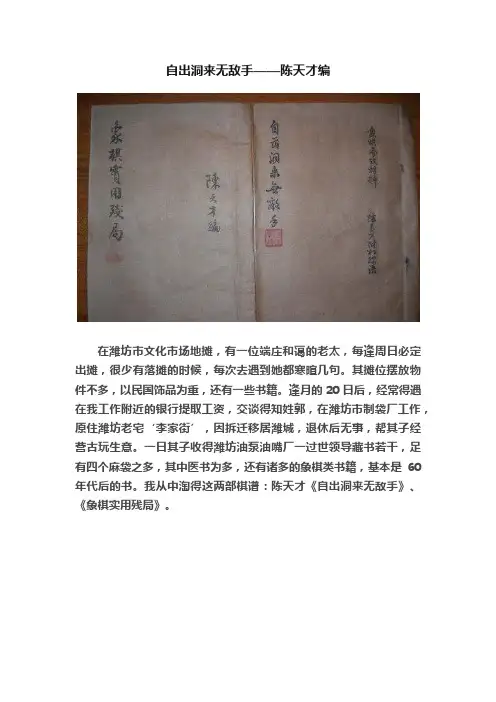 自出洞来无敌手——陈天才编
象棋實用残局
陳天才編
自出洞来無敵手
在潍坊市文化市场地摊，有一位端庄和蔼的老太，每逢周日必定
出摊，很少有落摊的时候，每次去遇到她都寒暄几句。其摊位摆放物
件不多，以民国饰品为重，还有一些书籍。逢月的 20 日后，经常得遇
在我工作附近的银行提取工资，交谈得知姓郭，在潍坊市制袋厂工作，
原住潍坊老宅‘李家街’，因拆迁移居潍城，退休后无事，帮其子经
营古玩生意。一日其子收得潍坊油泵油嘴厂一过世领导藏书若干，足
有四个麻袋之多，其中医书为多，还有诸多的象棋类书籍，基本是 60
年代后的书。我从中淘得这两部棋谱：陈天才《自出洞来无敌手》、
《象棋实用残局》。